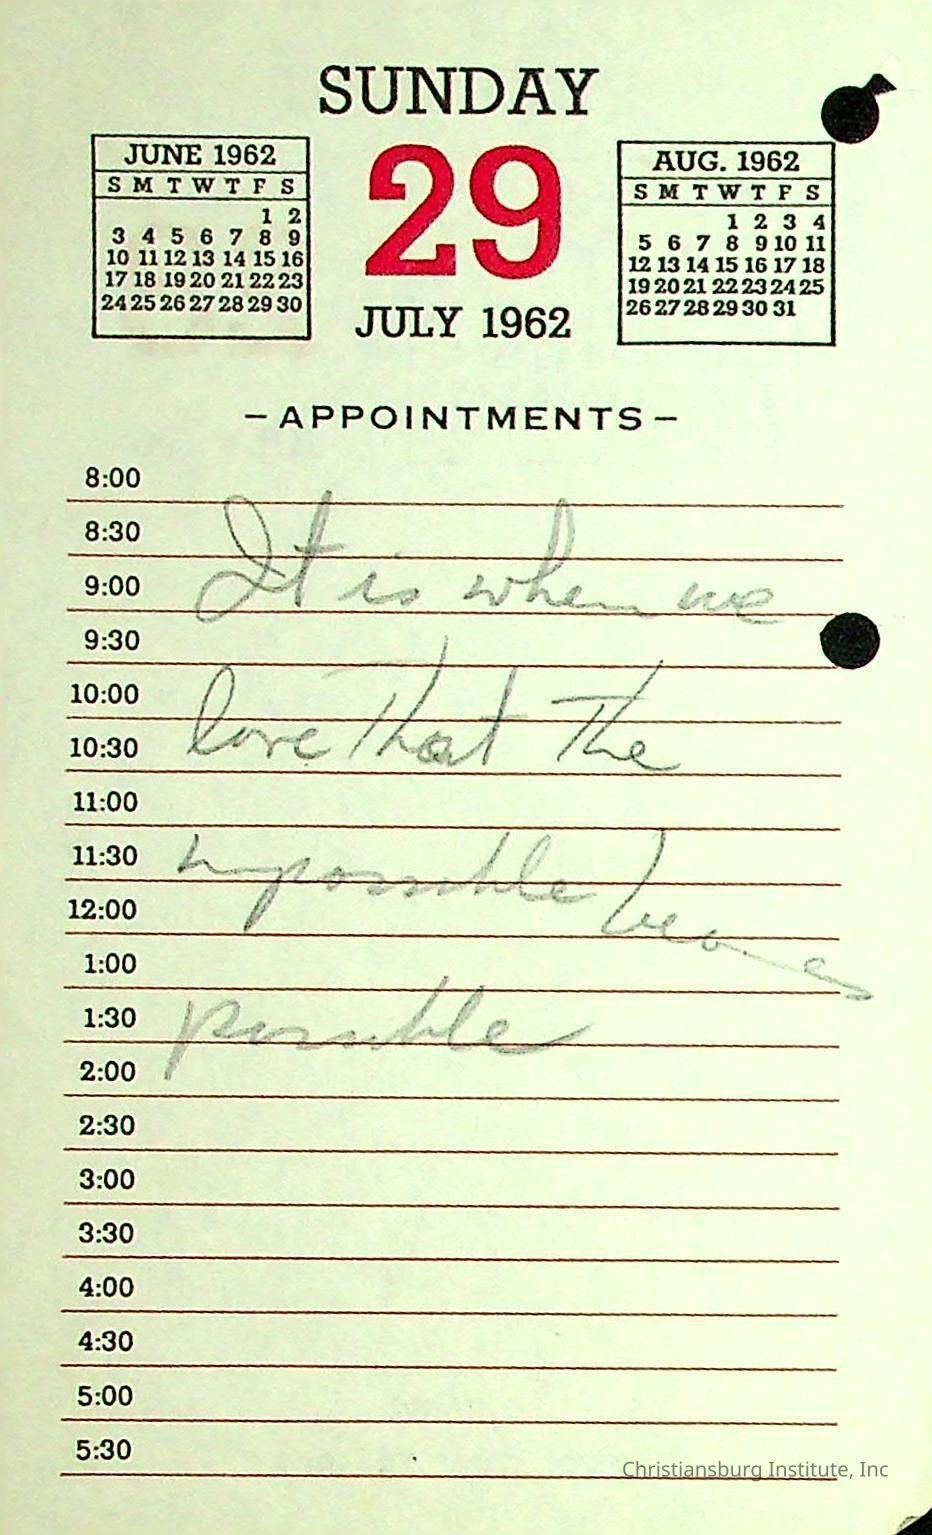 SUNDAY
29
JULY 1962
JUNE 1962
S M T W T F S
1 2
3 4 5 6 7 8 9
10 11 12 13 14 15 16
17 18 19 20 21 22 23
24 25 26 27 28 29 30
AUG. 1962
S M T W T F S
1 2 3 4
5 6 7 8 9 10 11
12 13 14 15 16 17 18
19 20 21 22 23 24 25
26 27 28 29 30 31
- APPOINTMENTS -
8:00
8:30
9:00 It is when we
9:30
10:00
10:30 love that the
11:00
11:30 impossible becomes
12:00
1:00
1:30 possible
2:00
2:30
3:00
3:30
4:00
4:30
5:00
5:30
Christiansburg Institute, Inc